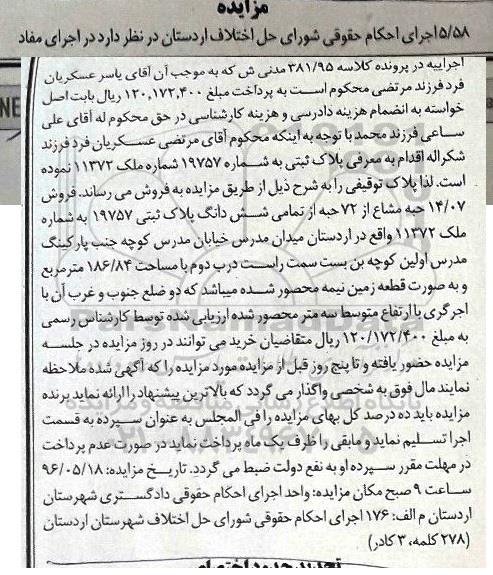 مزایده
۵/۵۸ اجرای احکام حقوقی شورای حل اختلاف اردستان در نظر دارد در اجرای مفاد
اجراییه در پرونده کلاسه ۳۸۱/۹۵ مدنی ش که به موجب آن آقای یاسر عسکریان
فرد فرزند مرتضی محکوم است به پرداخت مبلغ ۱۲۰,۱۷۲,۴۰۰ ریال بابت اصل
خواسته به انضمام هزینه دادرسی و هزینه کارشناسی در حق محکوم له آقای علی
ساعی فرزند محمد با توجه به اینکه محکوم آقای مرتضی عسکریان فرد فرزند
شکراله اقدام به معرفی پلاک ثبتی به شماره ۱۹۷۵۷ شماره ملک ۱۱۳۷۲ نموده
است. لذا پلاک توقیفی را به شرح ذیل از طریق مزایده به فروش می رساند. فروش
۱۴/۰۷ حبه مشاع از ۷۲ حبه از تمامی شش دانگ پلاک ثبتی ۱۹۷۵۷ به شماره
ملک ۱۱۳۷۲ واقع در اردستان میدان مدرس خیابان مدرس کوچه جنب پارکینگ
مدرس اولین کوچه بن بست سمت راست درب دوم با مساحت ۱۸۶/۸۴ مترمربع
و به صورت قطعه زمین نیمه محصور شده میباشد که دو ضلع جنوب و غرب آن با
اجرگری با ارتفاع متوسط سه متر محصور شده ارزیابی شده توسط کارشناس رسمی
به مبلغ ۱۲۰/۱۷۲/۴۰۰ ریال متقاضیان خرید می توانند در روز مزایده در جلسه
مزایده حضور یافته و تا پنج روز قبل از مزایده مورد مزایده را که آگهی شده ملاحظه
نمایند مال فوق به شخصی واگذار می گردد که بالاترین پیشنهاد را ارائه نماید برنده
مزایده باید ده درصد کل بهای مزایده را فی المجلس به عنوان سپرده به قسمت
اجرا تسلیم نماید و مابقی را ظرف یک ماه پرداخت نماید در صورت عدم پرداخت
در مهلت مقرر سپرده او به نفع دولت ضبط می گردد. تاریخ مزایده: ۹۶/۰۵/۱۸
ساعت ۹ صبح مکان مزایده: واحد اجرای احکام حقوقی دادگستری شهرستان
اردستان م الف: ۱۷۶ اجرای احکام حقوقی شورای حل اختلاف شهرستان اردستان
(۲۷۸ کلمه، ۳ کادر)